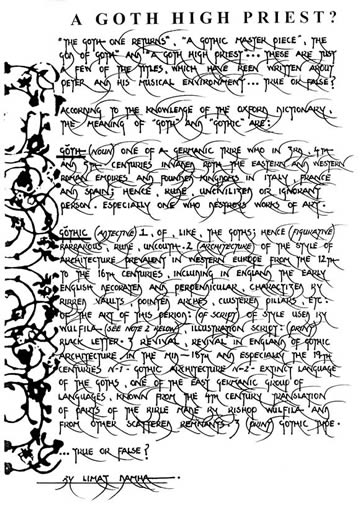 A GOTH HIGH PRIEST?
"THE GOTH ONE RETURNS". "A GOTHIC MASTER PIECE", THE
GOD OF GOTH" AND "A GOTH HIGH PRIEST"... THESE ARE JUST
A FEW OF THE TITLES, WHICH HAVE BEEN WRITTEN ABOUT
PETER AND HIS MUSICAL ENVIRONMENT... TRUE OR FALSE?
ACCORDING TO THE KNOWLEDGE OF THE OXFORD DICTIONARY,
THE MEANING OF "GOTH" AND "GOTHIC" ARE:
GOTH (NOUN) ONE OF A GERMANIC TRIBE WHO IN 3RD, 4TH
AND 5TH CENTURIES INVADED BOTH THE EASTERN AND WESTERN
ROMAN EMPIRES AND FOUNDED KINGDOMS IN ITALY, FRANCE
AND SPAIN; HENCE, RUDE, UNCIVILIZED OR IGNORANT
PERSON. ESPECIALLY ONE WHO DESTROYS WORKS OF ART.
GOTHIC (ADJECTIVE) 1. OF, LIKE, THE GOTHS; HENCE (FIGURATIVE)
BARBAROUS, RUDE, UNCOUTH. 2 (ARCHITECTURE) OF THE STYLE OF
ARCHITECTURE PREVALENT IN WESTERN EUROPE FROM THE 12TH
TO THE 16TH CENTURIES, INCLUDING IN ENGLAND THE EARLY
ENGLISH DECORATED AND PERPENDICULAR, CHARACTIZED BY
RIBBED VAULTS, POINTED ARCHES, CLUSTERED PILLARS, ETC:
OF THE ART OF THIS PERIOD; (OF SCRIPT) OF STYLE USED BY
WULFILA (SEE NOTE 2 BELOW), ILLUSTRATION SCRIPT: (PRINT)
BLACK LETTER. 3 REVIVAL, REVIVAL IN ENGLAND OF GOTHIC
ARCHITECTURE IN THE MID-18TH AND ESPECIALLY THE 19TH
CENTURIES N-1 GOTHIC ARCHITECTURE N-2 EXTINCT LANGUAGE
OF THE GOTHS, ONE OF THE EAST GERMANIC GROUP OF
LANGUAGES, KNOWN FROM THE 4TH CENTURY TRANSLATION
OF PARTS OF THE BIBLE MADE BY BISHOP WULFILA AND
FROM OTHER SCATTERED REMNANTS. 3 (PRINT) GOTHIC TYPE.
...TRUE OR FALSE?
BY LIMAT DAMHA